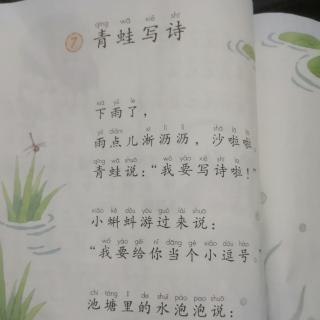 qīng wā xiě shī
7 青蛙写诗
xià yǔ le
下雨了，
yǔ diǎnr shā lā
雨点儿淅沥沥，沙啦啦
qīng wā shuō wǒ yào xiě shī la
青蛙说：“我要写诗啦！”
xiǎo kē dǒu yóu guò lái shuō
小蝌蚪游过来说：
wǒ yào gěi nǐ dāng gè xiǎo dòu hào
“我要给你当个小逗号
chí táng lǐ de shuǐ pào pao shuō
池塘里的水泡泡说：